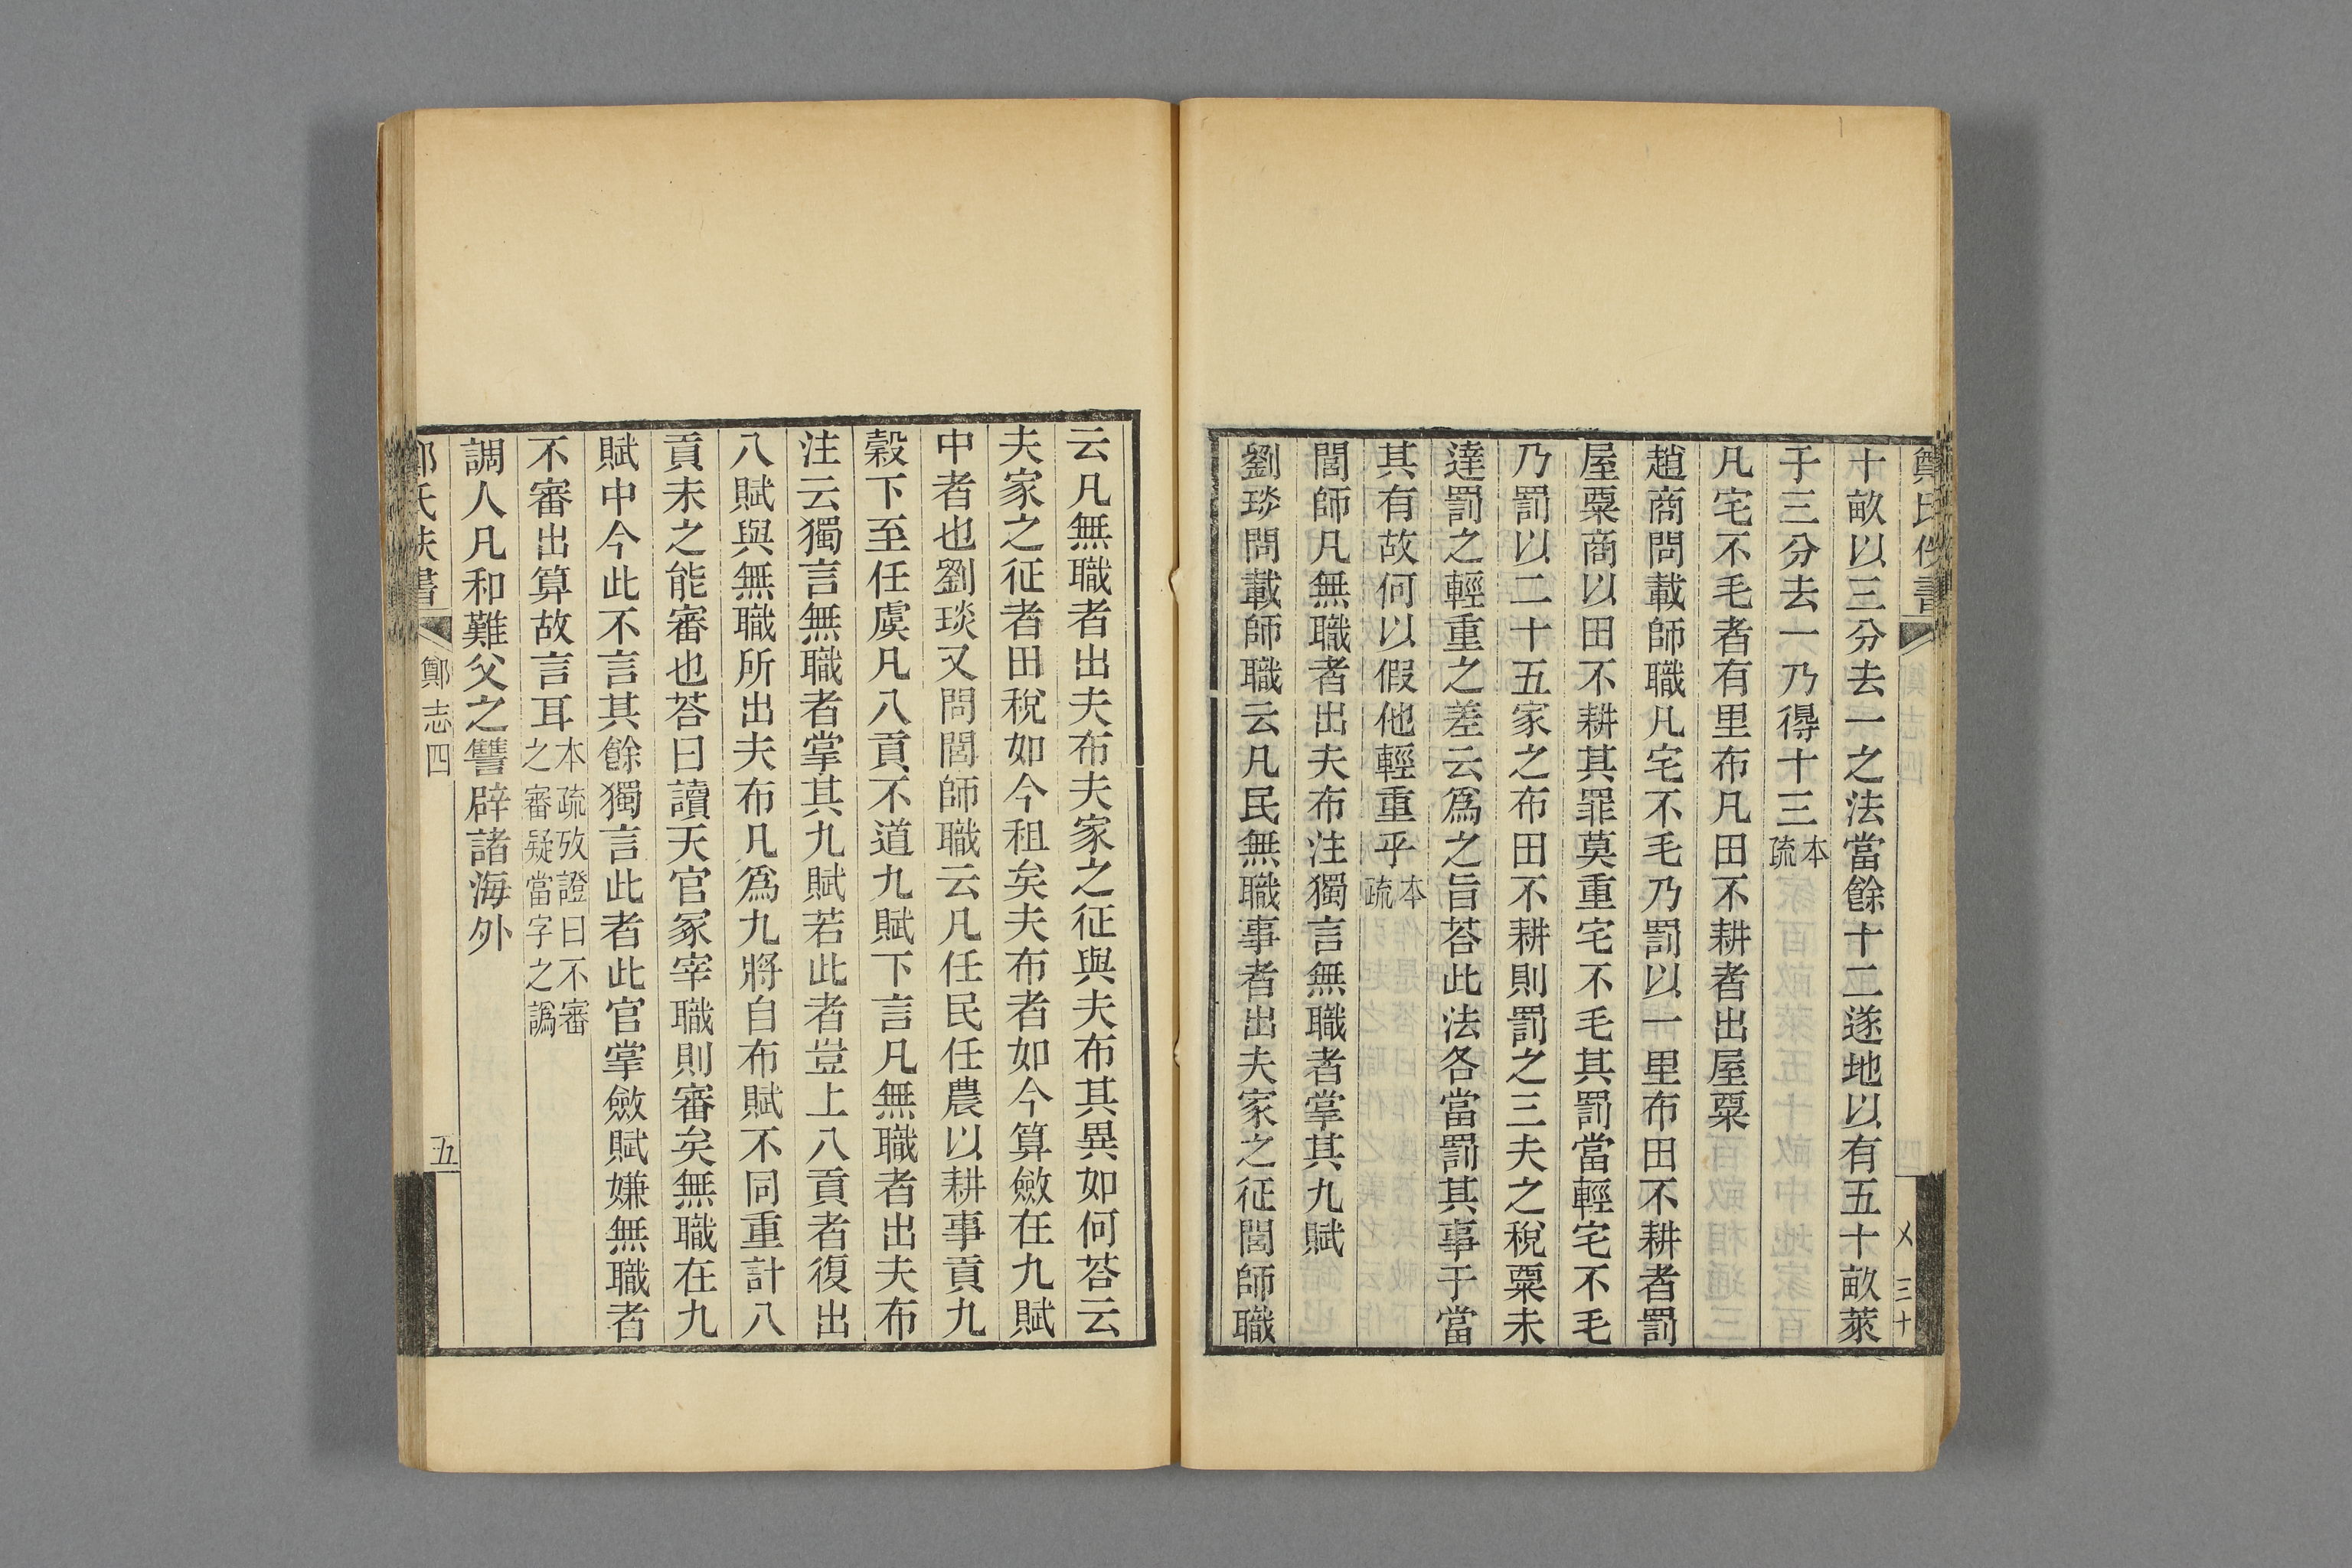 鄭氏佚書
㐅 三十
十畝以三分去一之法當餘十二遂地以有五十畝萊
于三分去一乃得十三本疏
凡宅不毛者有里布凡田不耕者出屋粟
趙商問載師職凡宅不毛乃罰以一里布田不耕者罰
屋粟商以田不耕其罪莫重宅不毛其罰當輕宅不毛
乃罰以二十五家之布田不耕則罰之三夫之稅粟未
達罰之輕重之差云爲之旨荅此法各當罰其事于當
其有故何以假他輕重乎本疏
閭師凡無職者出夫布注獨言無職者掌其九賦
劉琰問載師職云凡民無職事者出夫家之征閭師職
云凡無職者出夫布夫家之征與夫布其異如何荅云
夫家之征者田稅如今租矣夫布者如今算斂在九賦
中者也劉琰又問閭師職云凡任民任農以耕事貢九
穀下至任虞凡八貢不道九賦下言凡無職者出夫布
注云獨言無職者掌其九賦若此者豈上八貢者復出
八賦與無職所出夫布凡爲九將自布賦不同重計八
貢未之能審也荅曰讀天官冢宰職則審矣無職在九
賦中今此不言其餘獨言此者此官掌斂賦嫌無職者
不審出算故言耳本疏攷證曰不審
之審疑當字之譌
調人凡和難父之讐辟諸海外
鄭氏佚書
鄭志四
五